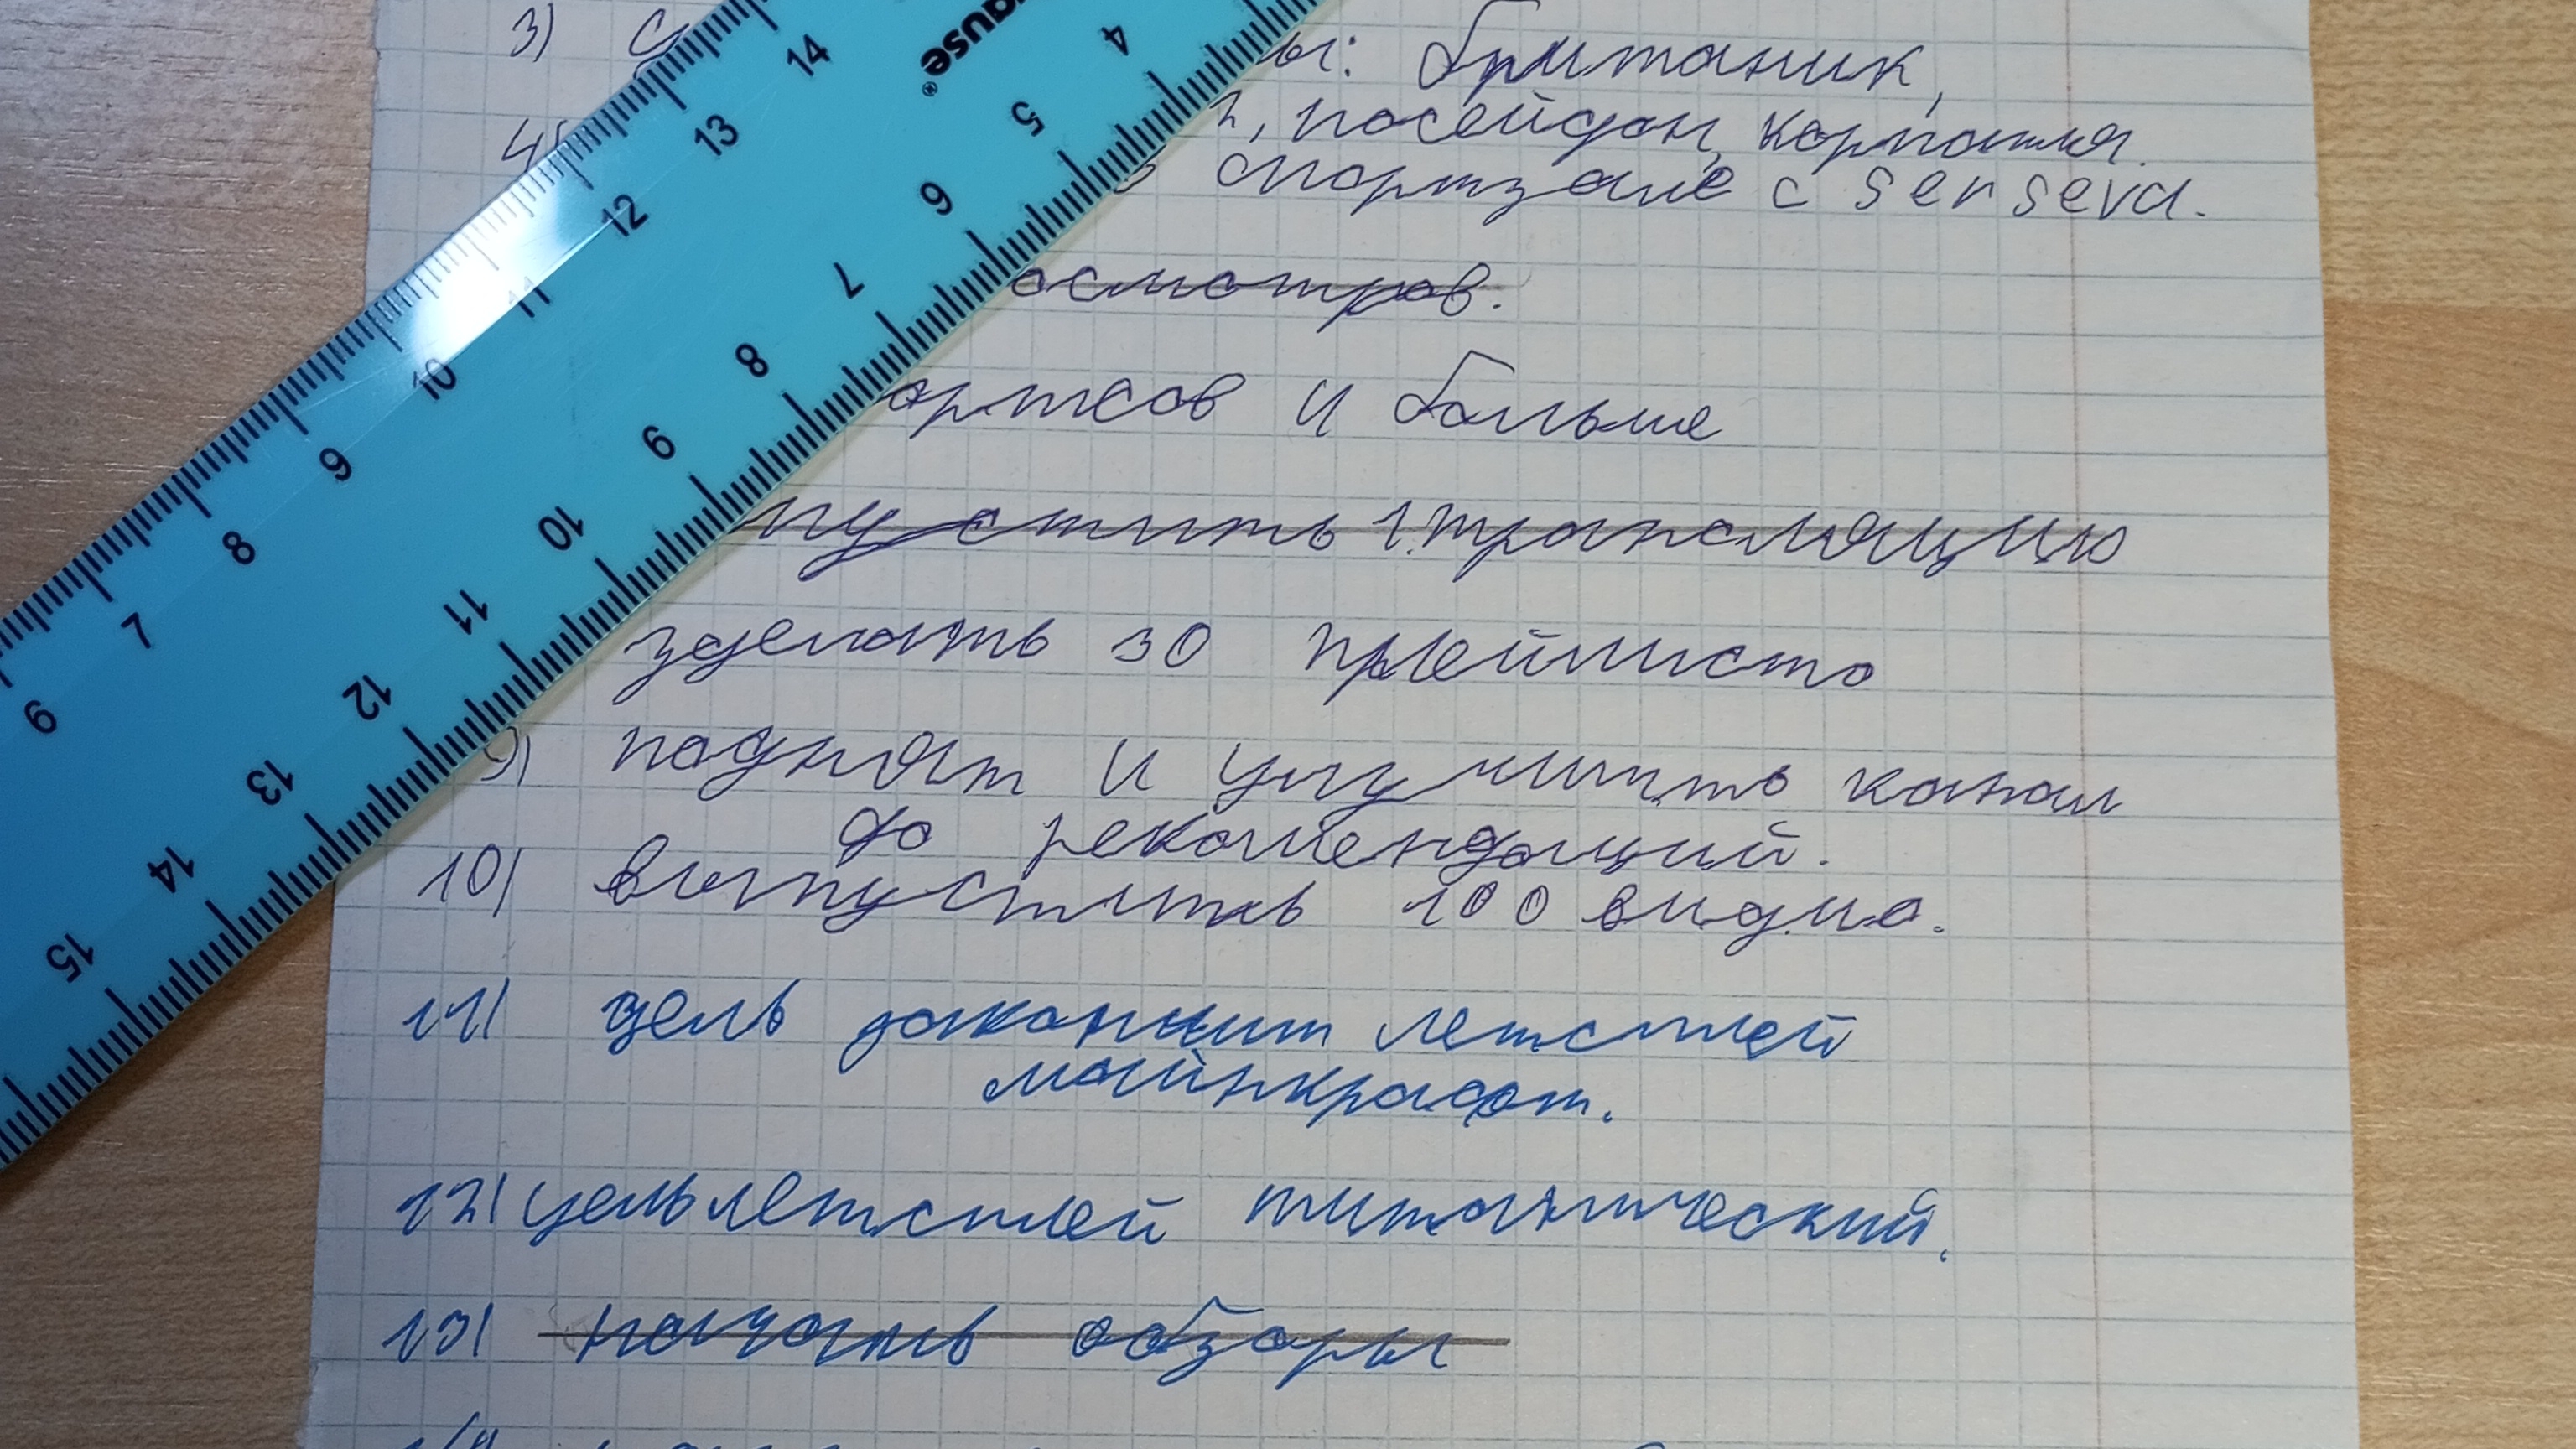 3) ы: британик,
4) 2, посейдон, карпатия.
спортзале с serseva.
осмотров.
ортсов и больше
пустить 1.трансляцию
зделать 30 плейлиста
9) поднят и улучшить канал
до рекомендаций.
10) выпустить 100 видио.
11) цель заканчит летсплей
майнкрафт.
12) цель летсплей титанический.
13) начать обзоры
ause®
4 5 6 7 8 9 10 11 12 13 14 15
14 13 12 11 10 9 8 7 6